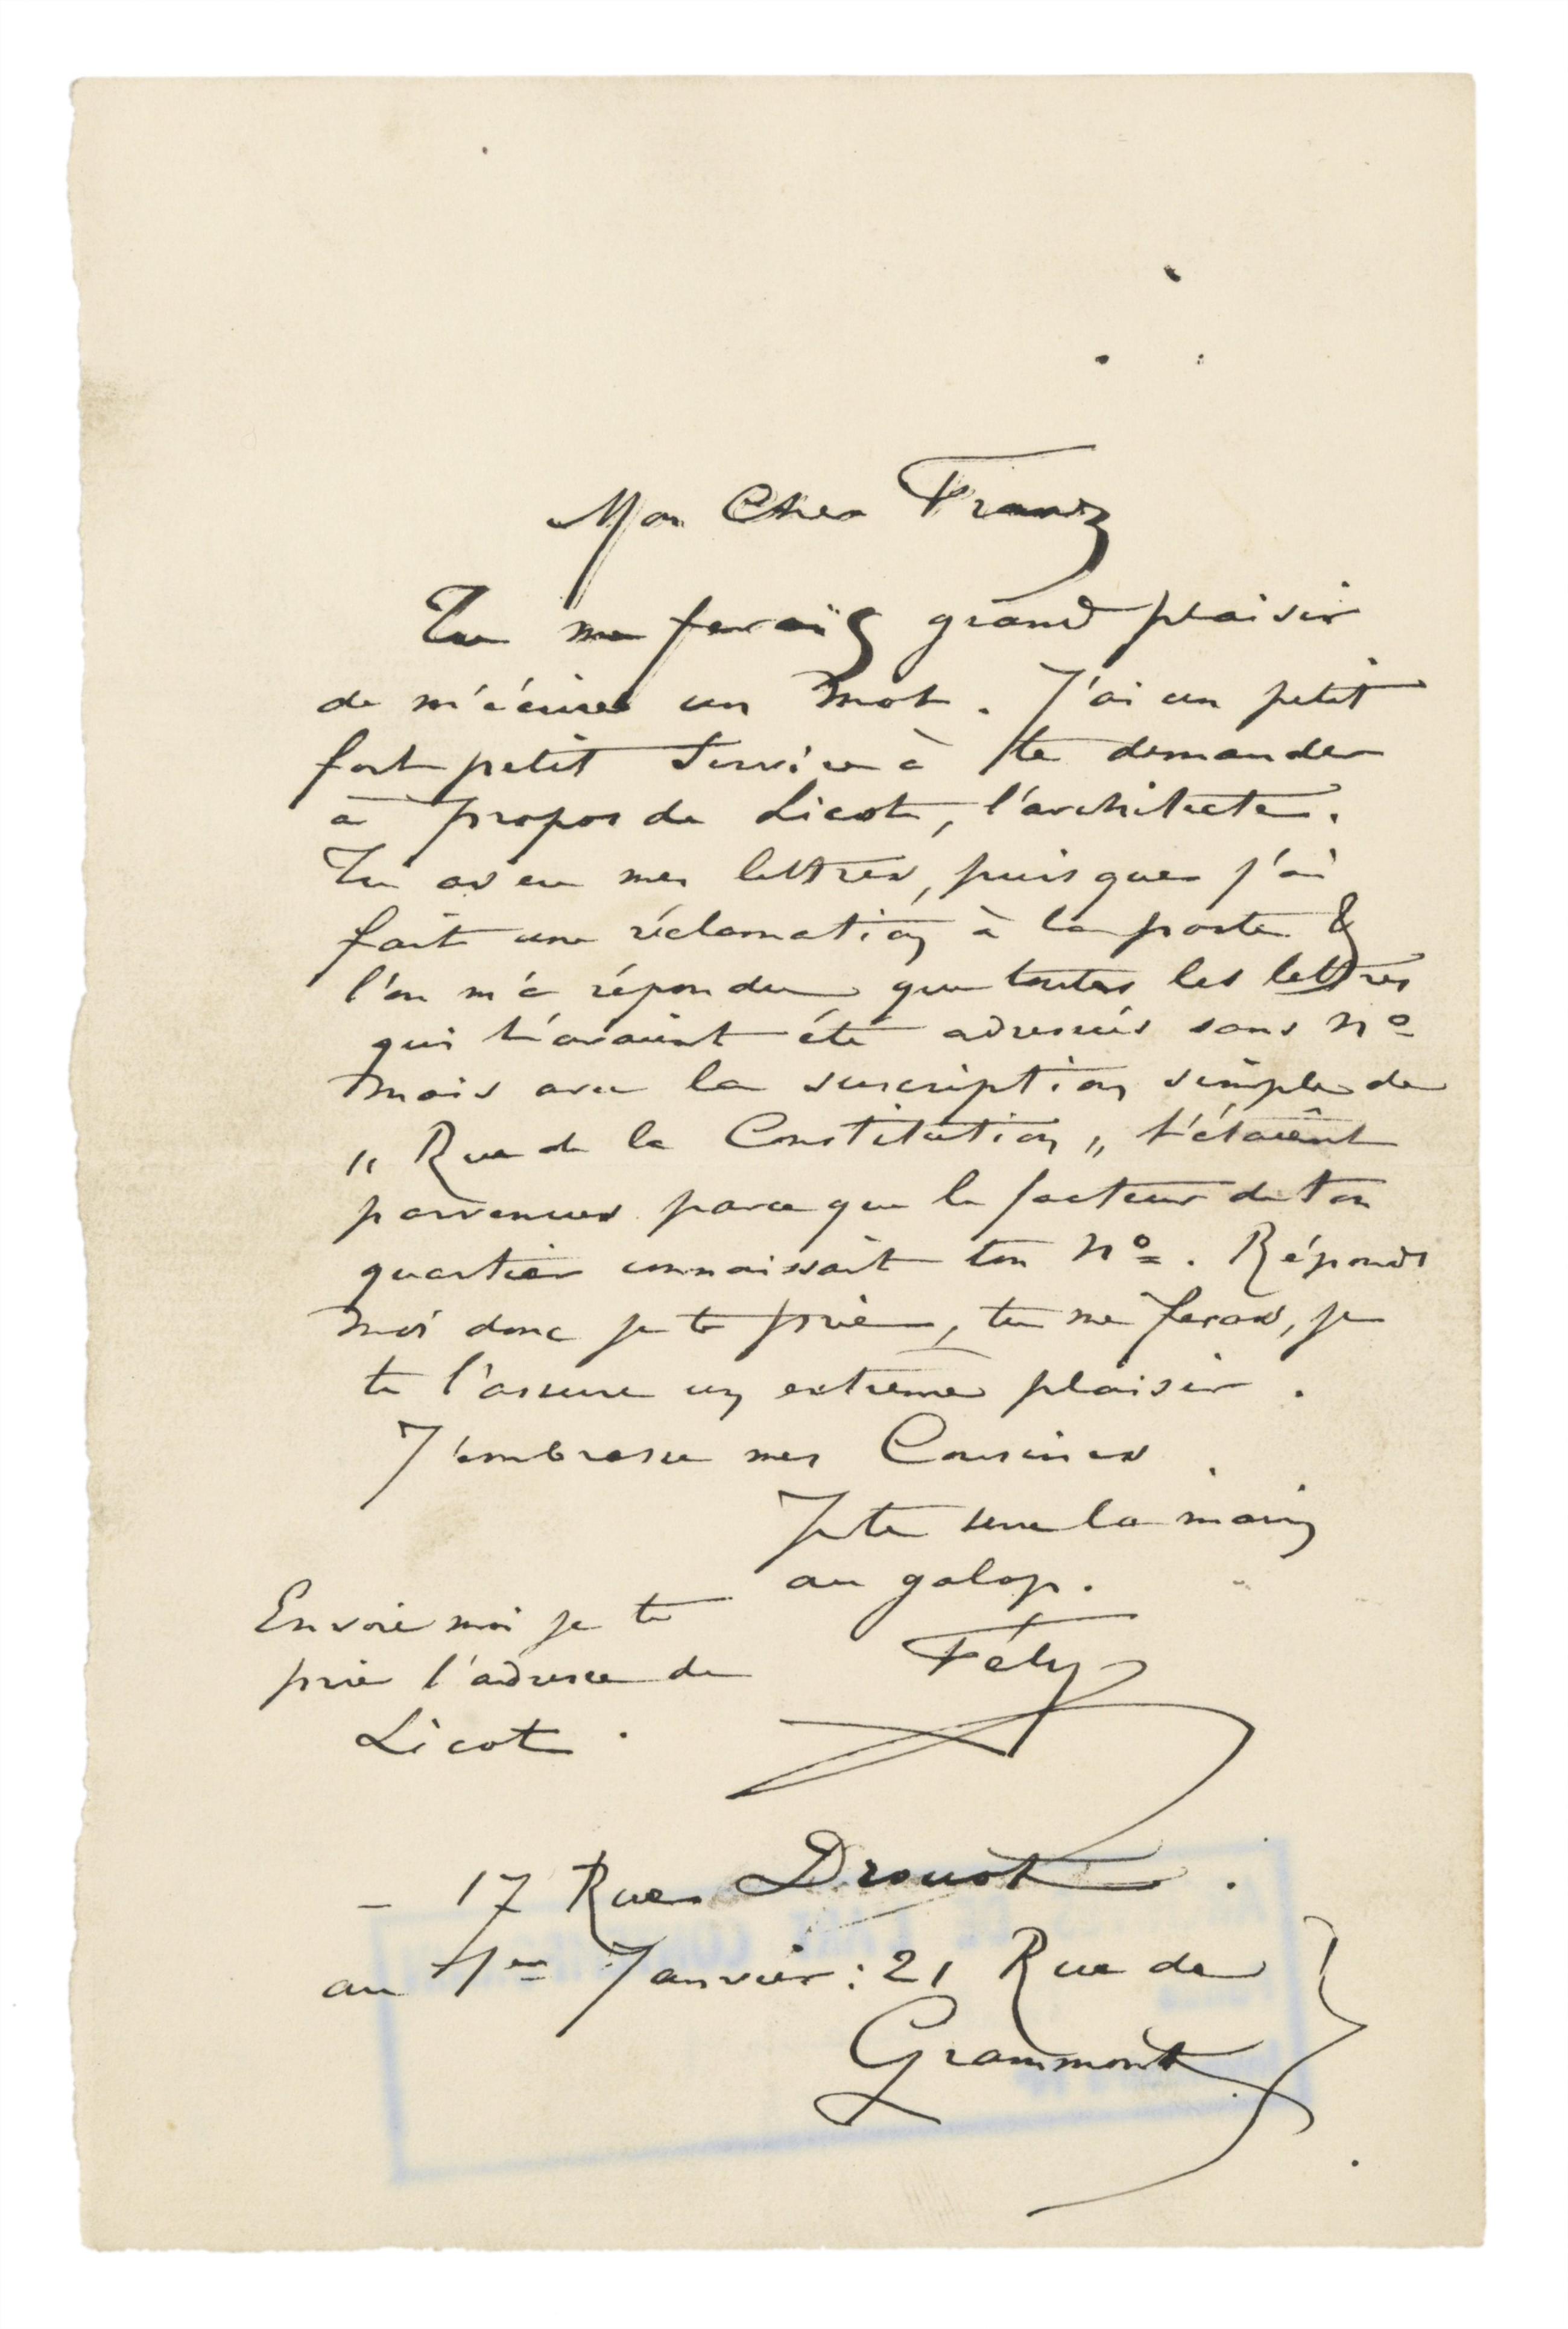 Mon Cher Franz
Tu me ferais grand plaisir
de m'écrire un mot. J'ai un petit
fort petit service à te demander
à propos de Licot, l'architecte.
Tu as eu mes lettres, puisque j'ai
fait une réclamation à la poste &
l'on m'a répondu que toutes les lettres
qui t'avaient été adressées sans nº
mais avec la suscription simple de
„ Rue de la Constitution „ t'étaient
parvenues parce que le facteur de ton
quartier connaissait ton nº. Réponds
moi donc je te prie, tu me feras, je
te l'assure un extrême plaisir.
J'embrasse mes Cousines.
Je te serre la main
au galop.
Fély
Envoie moi je te
prie l'adresse de
Licot.
– 17 Rue Drouot.
au 1er Janvier : 21 Rue de
Grammont